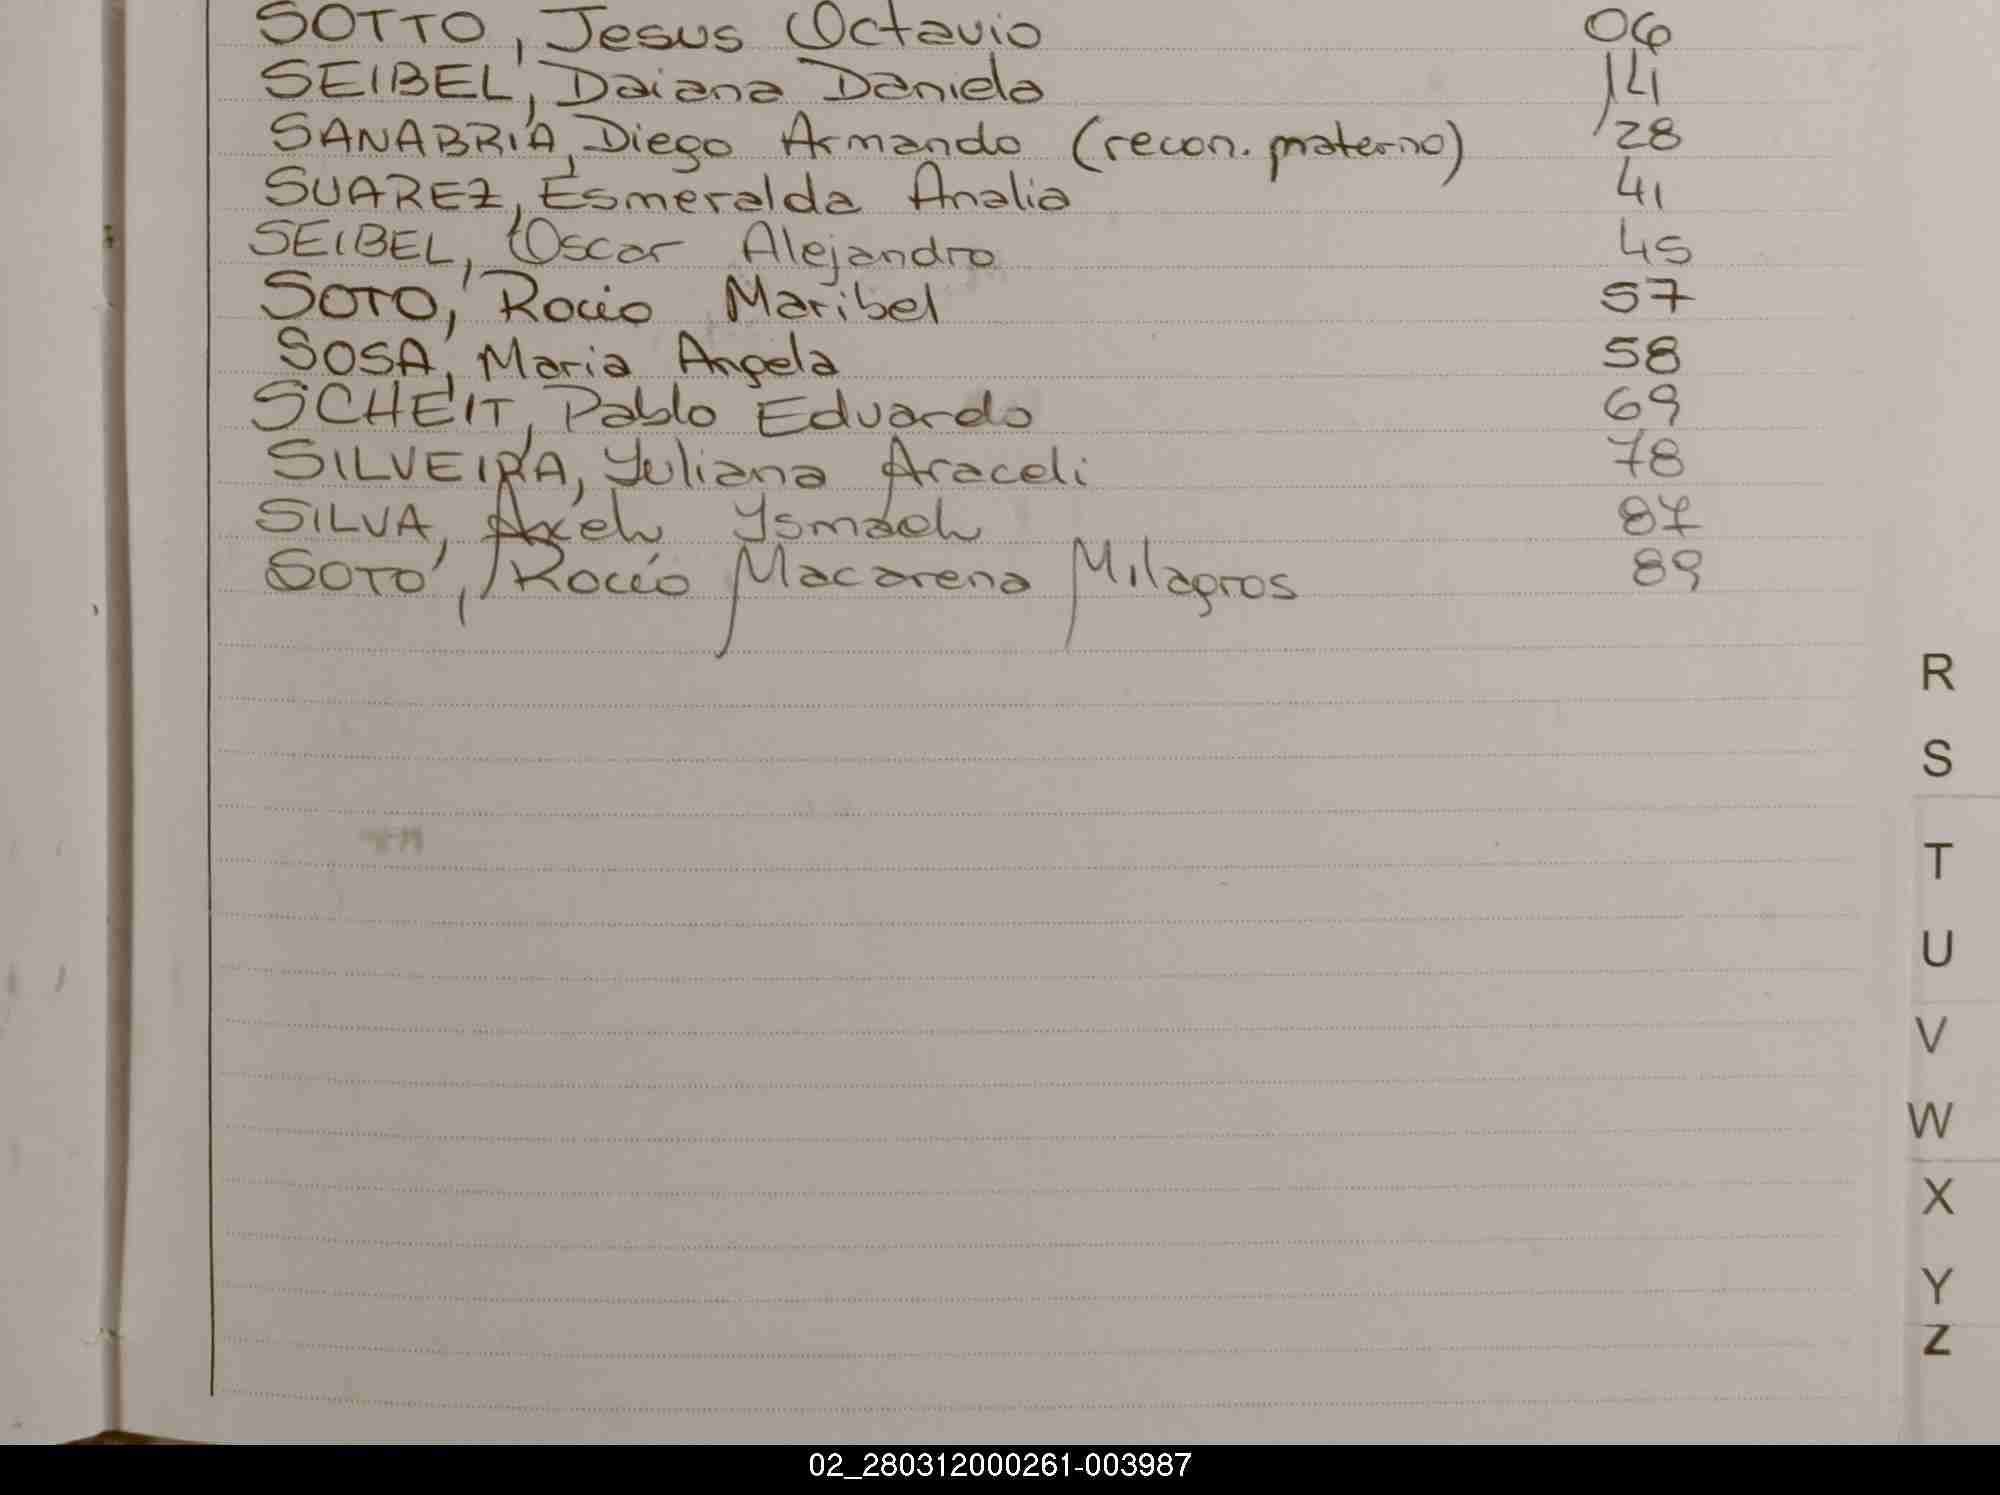 SOTTO, Jesus Octavio 06
SEIBEL, Daiana Daniela 14
SANABRIA, Diego Armando (recon. materno) 28
SUAREZ, Esmeralda Analia 41
SEIBEL, Oscar Alejandro 45
SOTO, Rocio Maribel 57
SOSA, Maria Angela 58
SCHEIT, Pablo Eduardo 69
SILVEIRA, Yuliana Araceli 78
SILVA, Axel Ysmael 87
SOTO, Rocío Macarena Milagros 89
R
S
T
U
V
W
X
Y
Z
02_280312000261-003987